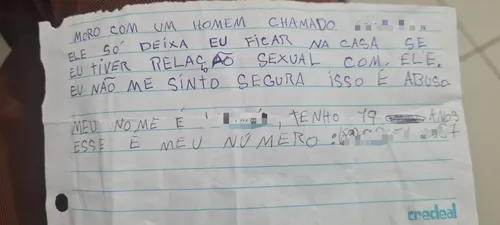 MORO COM UM HOMEM CHAMADO
ELE SÓ DEIXA EU FICAR NA CASA SE
EU TIVER RELAÇÃO SEXUAL COM ELE.
EU NÃO ME SINTO SEGURA ISSO É ABUSO
MEU NOME É TENHO 19 ANOS
ESSE É MEU NÚMERO:
credeal